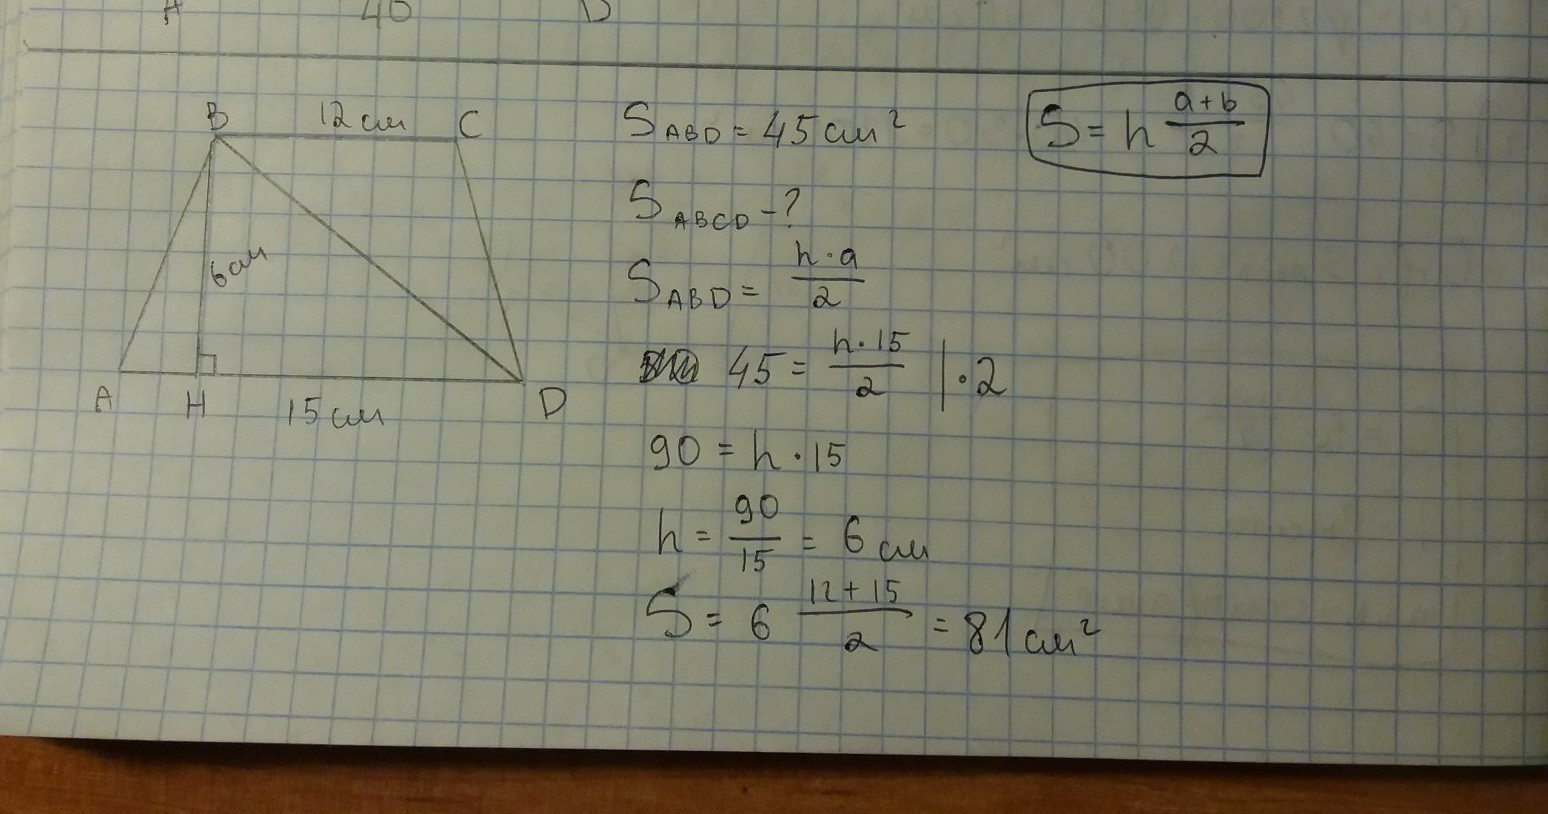 A 40 D
B 12 см C
6 см
A H 15 см D
S ABD = 45 см²
S = h (a+b)/2
S ABCD - ?
S ABD = (h · a)/2
45 = (h · 15)/2 | · 2
90 = h · 15
h = 90/15 = 6 см
S = 6 (12 + 15)/2 = 81 см²